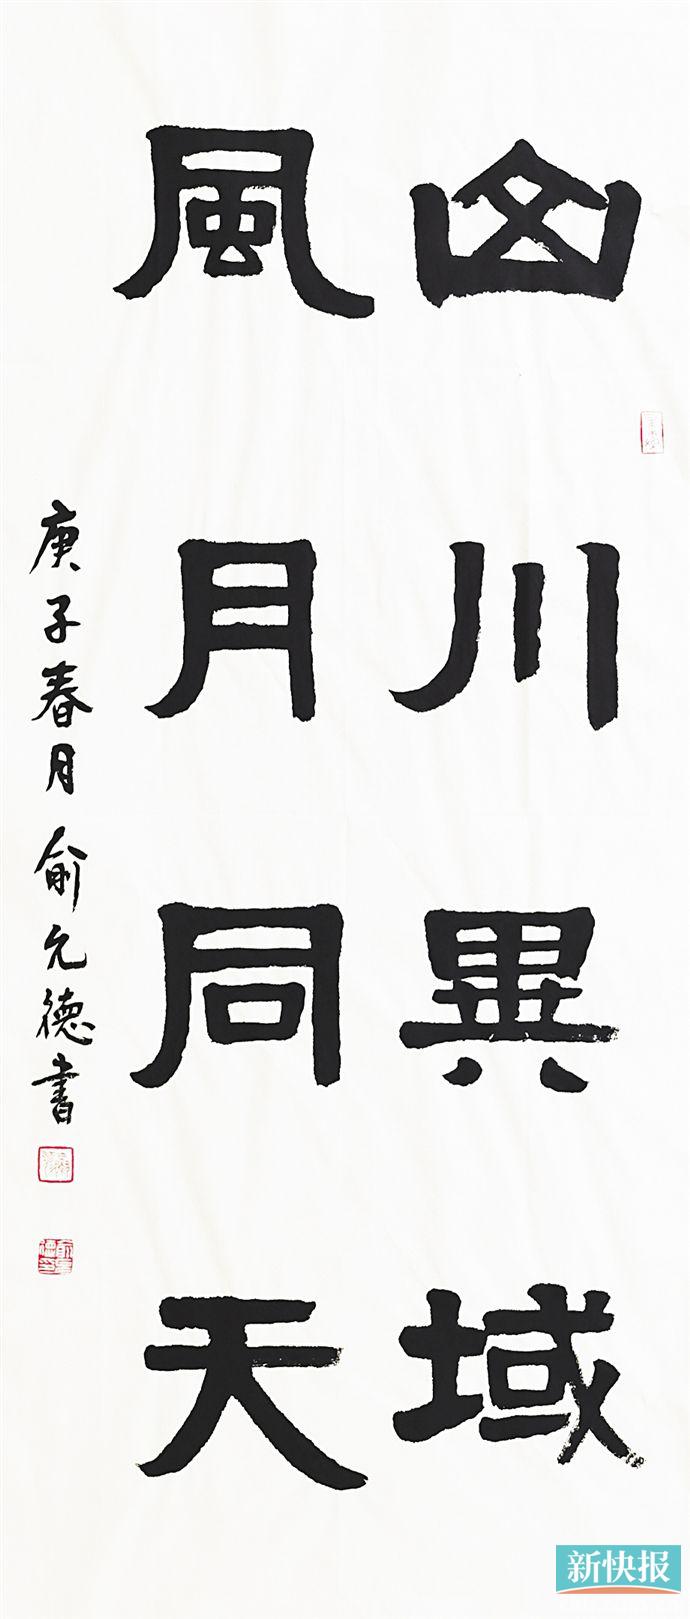 山川異域
風月同天
庚子春月俞允德書
新快报